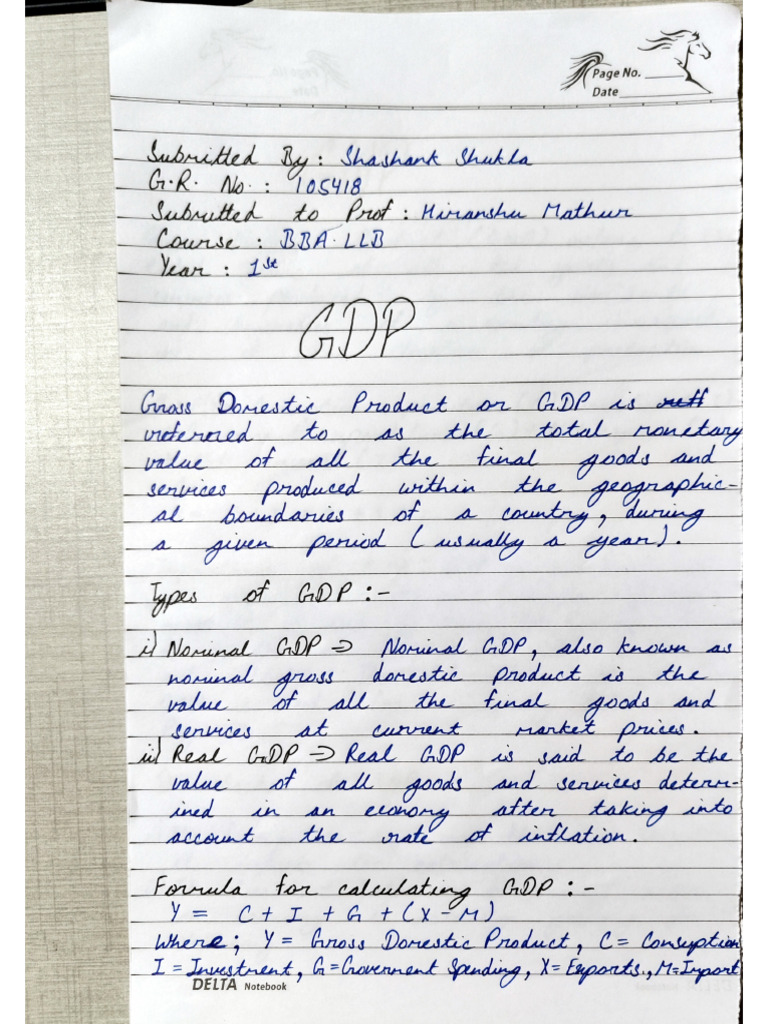 Page No.
Date
Submitted By : Shashank Shukla
G.R. No. : 105418
Submitted to Prof : Hiranshu Mathur
Course : BBA.LLB
Year : 1st
GDP
Gross Domestic Product or GDP is
referred to as the total monetary
value of all the final goods and
services produced within the geographic-
al boundaries of a country, during
a given period (usually a year).
Types of GDP :-
i) Nominal GDP ⇒ Nominal GDP, also known as
nominal gross domestic product is the
value of all the final goods and
services at current market prices.
ii) Real GDP ⇒ Real GDP is said to be the
value of all goods and services determ-
ined in an economy after taking into
account the rate of inflation.
Formula for calculating GDP :-
Y = C + I + G + (X - M)
Where; Y = Gross Domestic Product, C = Consuption
I = Investment, G = Government Spending, X = Exports., M = Import
DELTA Notebook